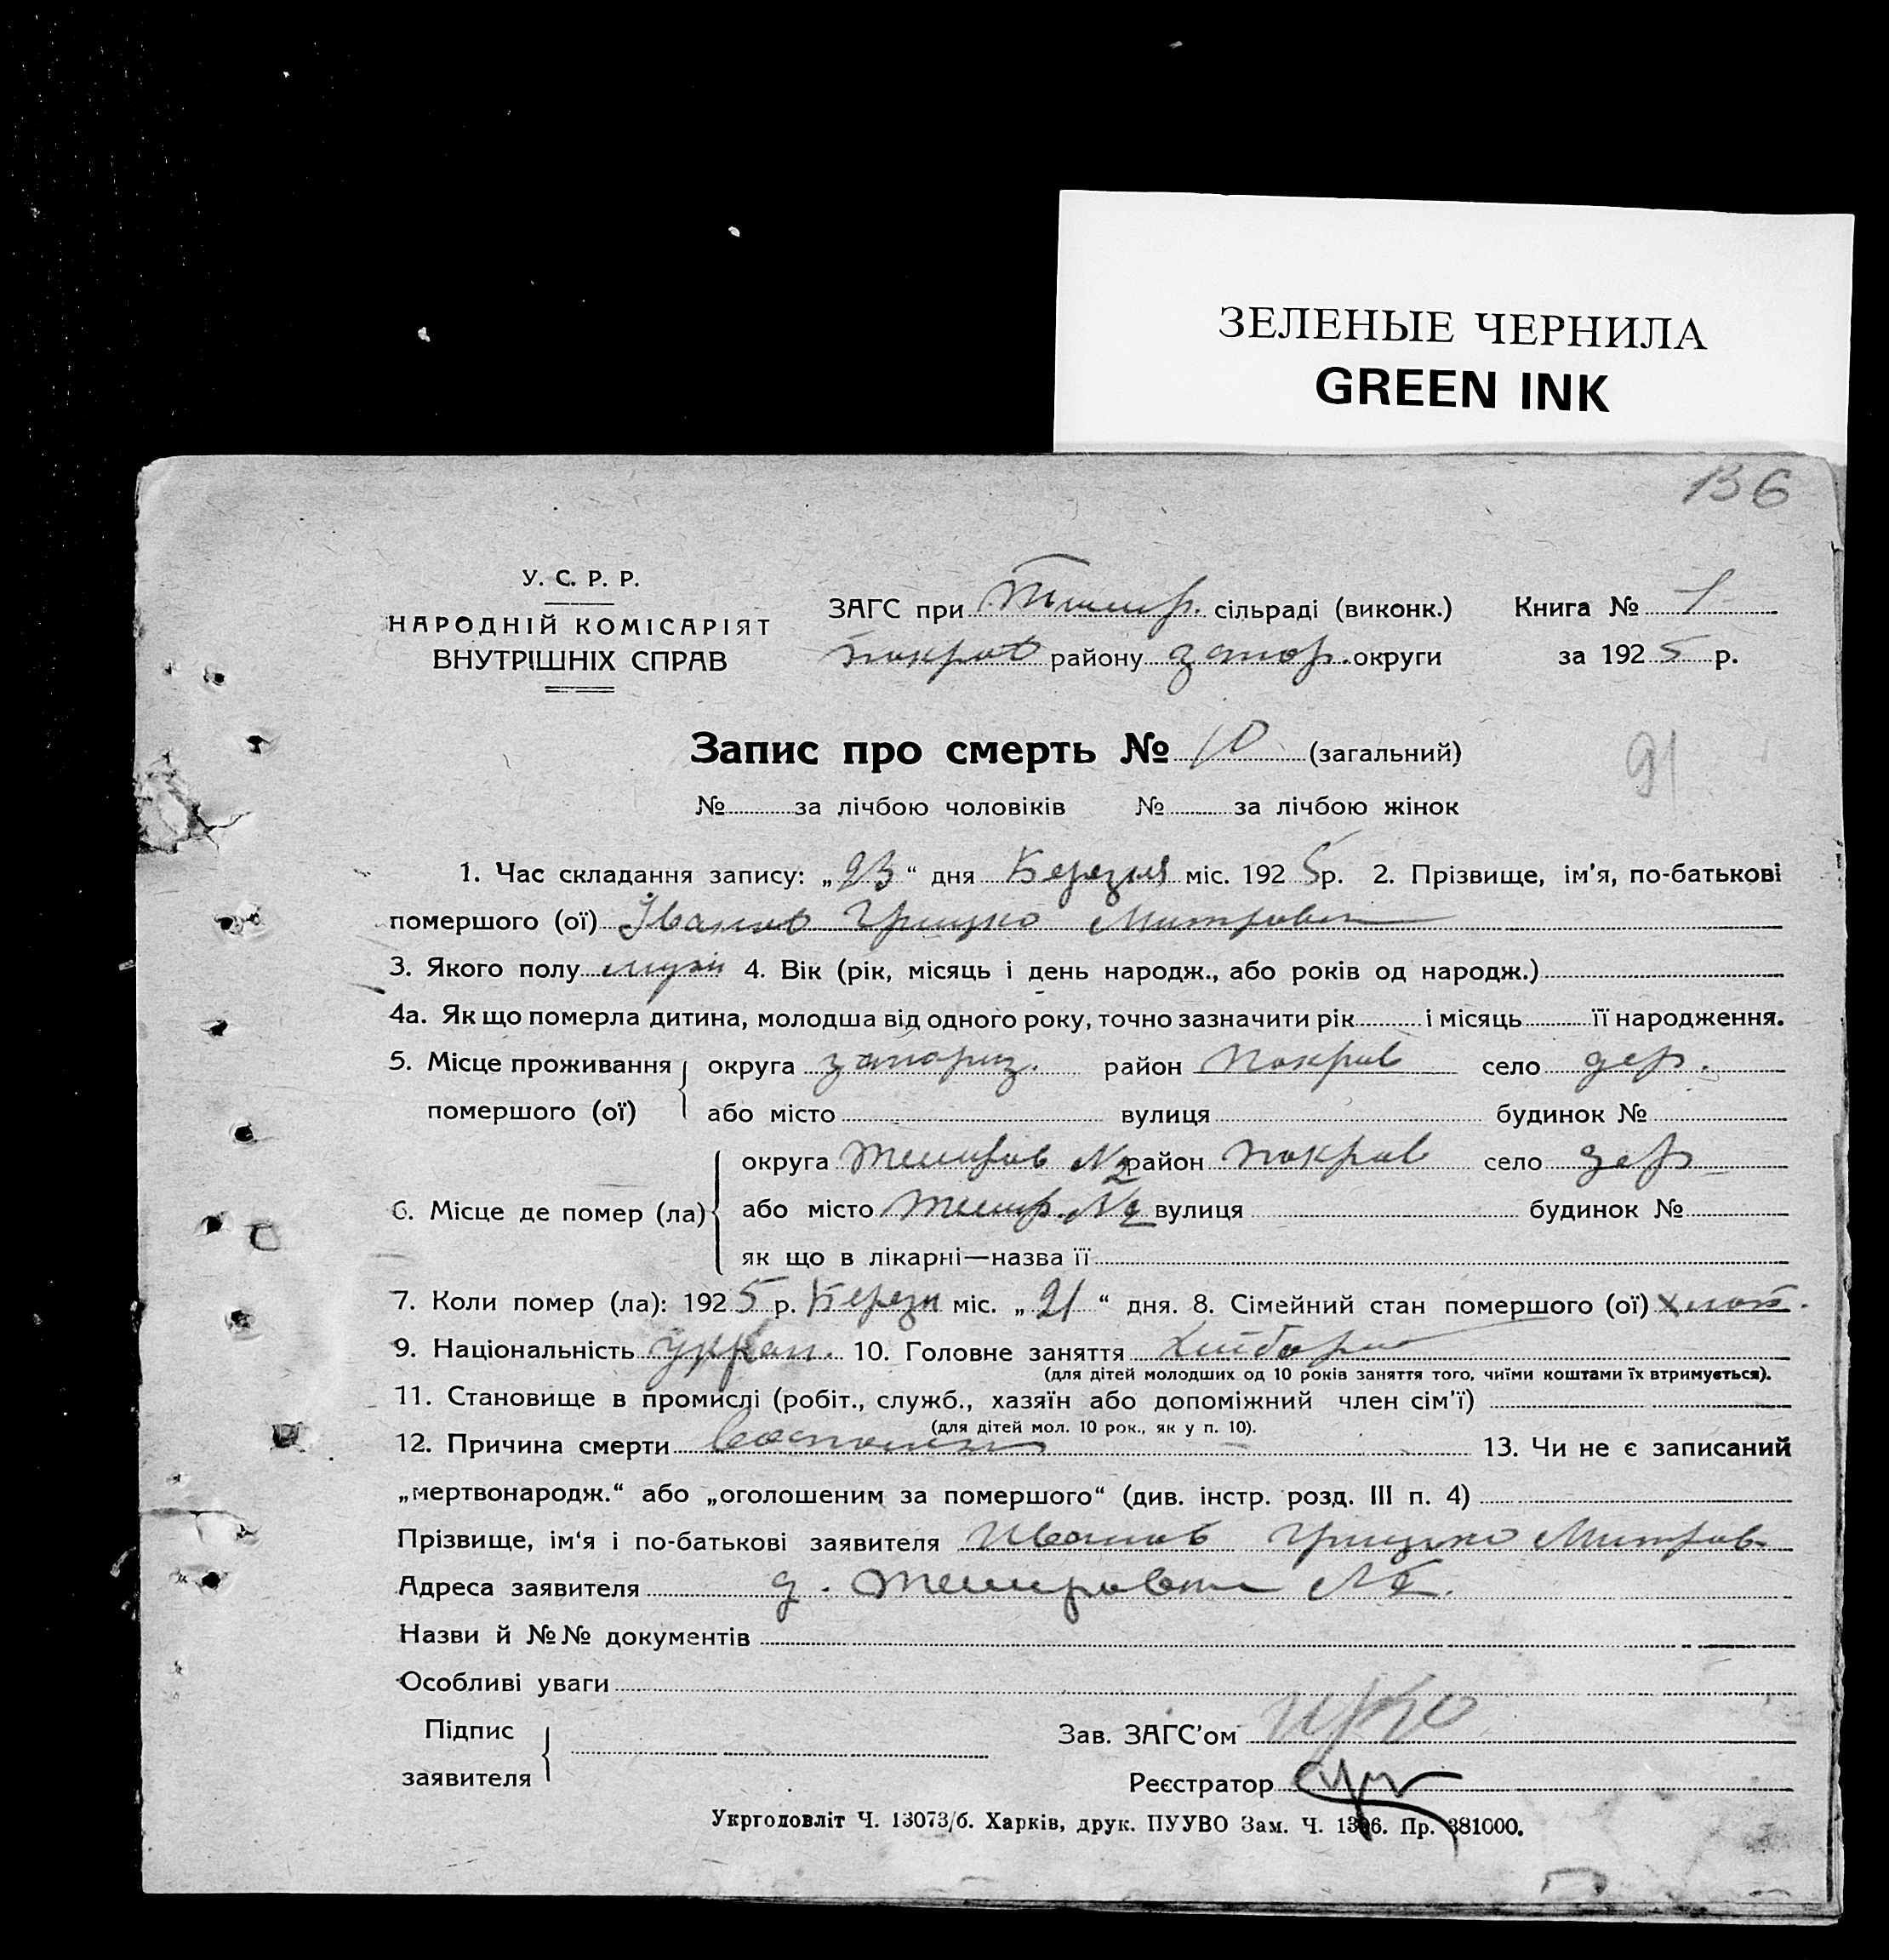 ЗЕЛЕНЫЕ ЧЕРНИЛА
GREEN INK
136
У. С. Р. Р.
НАРОДНІЙ КОМІСАРІЯТ
ВНУТРІШНІХ СПРАВ
ЗАГС при сільраді (виконк.) Книга № 1
покров району запор. округи за 1925 р.
Запис про смерть № 10 (загальний)
91
№ за лічбою чоловіків № за лічбою жінок
1. Час складання запису: „23“ дня Березня міс. 1925р. 2. Прізвище, ім’я, по-батькові
помершого (ої) Іванов Грицко Митров
3. Якого полу муж 4. Вік (рік, місяць і день народж., або років од народж.)
4а. Як що померла дитина, молодша від одного року, точно зазначити рік і місяць її народження.
5. Місце проживання округа запориз. район покров село дер.
помершого (ої) або місто вулиця будинок №
округа №2 район покров село дер
6. Місце де помер (ла) або місто №2 вулиця будинок №
як що в лікарні—назва її
7. Коли помер (ла): 1925 р. Березн міс. „21“ дня. 8. Сімейний стан помершого (ої)
9. Національність украп. 10. Головне заняття
(для дітей молодших од 10 років заняття того, чиїми коштами їх втримується).
11. Становище в промислі (робіт., служб., хазяїн або допоміжний член сім’ї)
(для дітей мол. 10 рок., як у п. 10).
12. Причина смерти 13. Чи не є записаний
„мертвонародж.“ або „оголошеним за помершого“ (див. інстр. розд. III п. 4)
Прізвище, ім‘я і по-батькові заявителя Иванов Грицко Митров
Адреса заявителя д. №2.
Назви й №№ документів
Особливі уваги
Підпис Зав. ЗАГС’ом
заявителя Реєстратор
Укрголовліт Ч. 13073/б. Харків, друк. ПУУВО Зам. Ч. 1396. Пр. 381000.